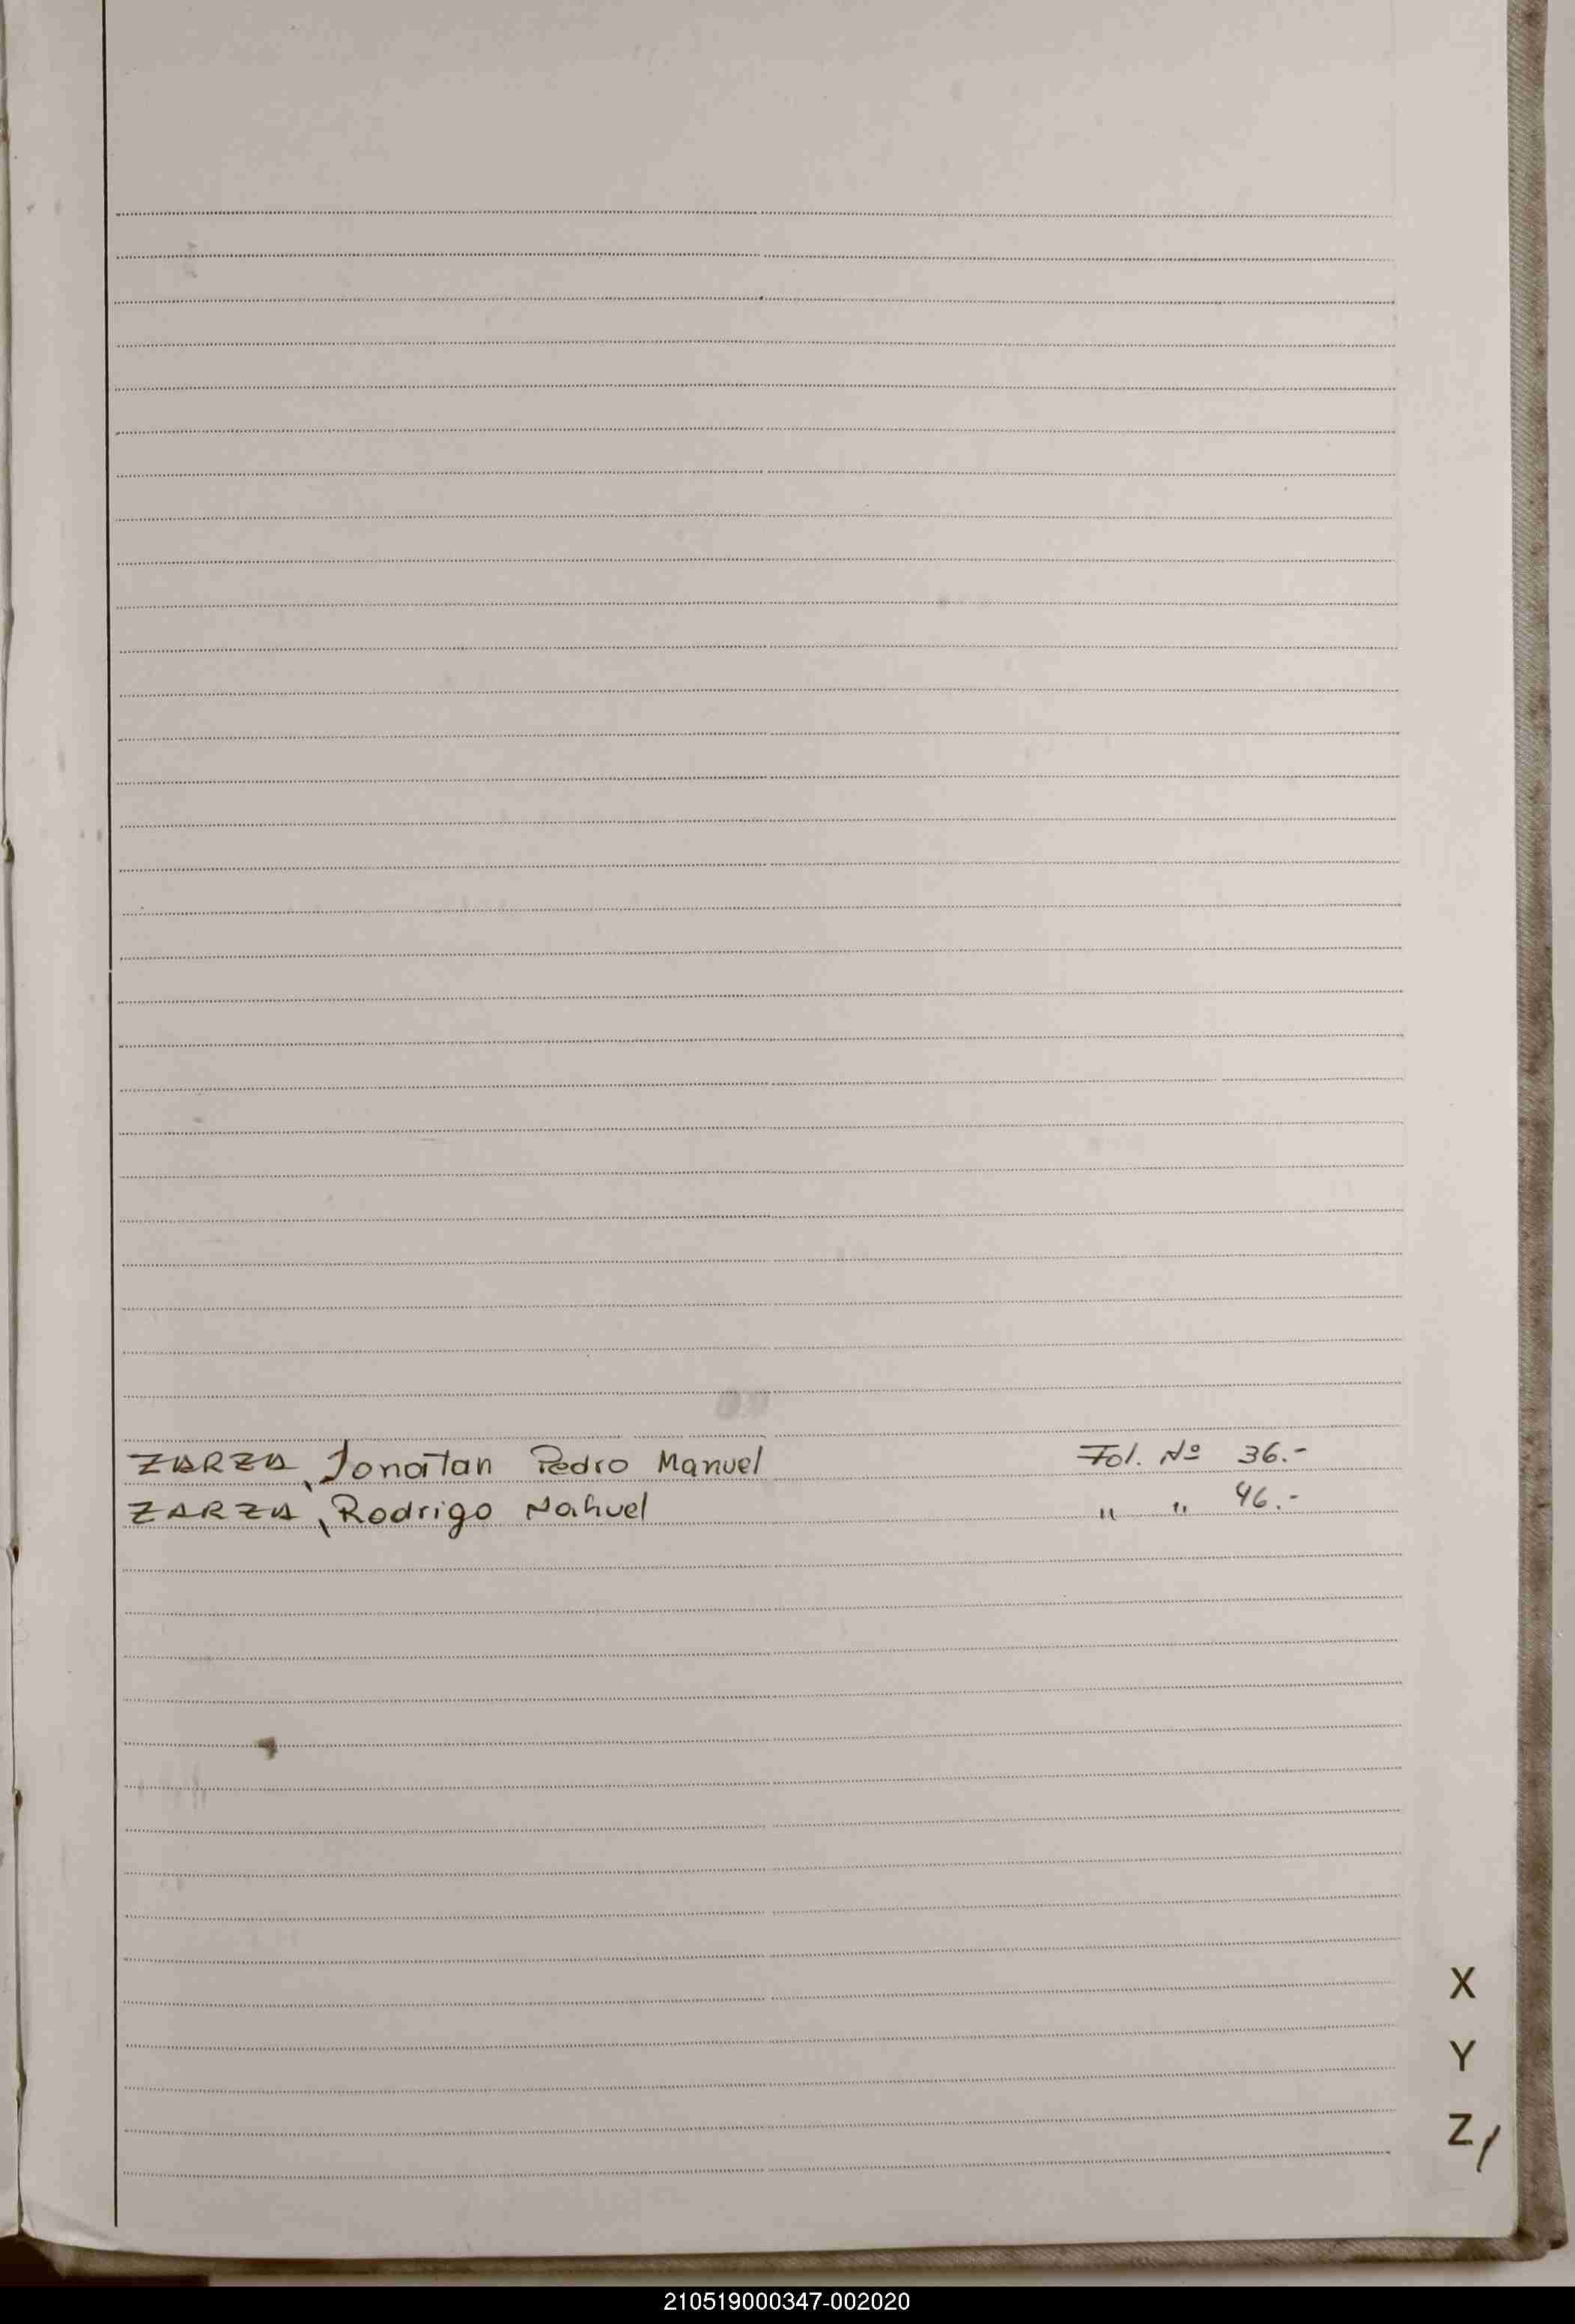 ZARZA, Jonatan Pedro Manuel Fol. Nº 36.-
ZARZA, Rodrigo Nahuel " " 46.-
X
Y
Z/
210519000347-002020